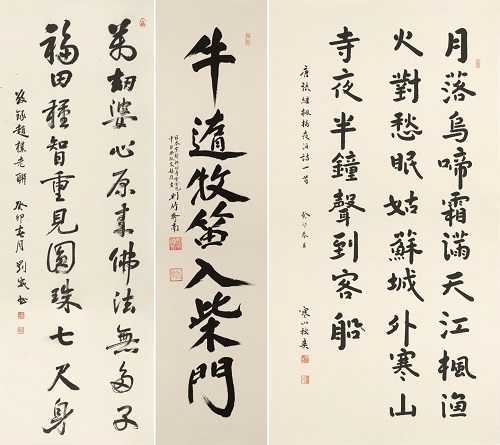 月落烏啼霜滿天江楓漁
火對愁眠姑蘇城外寒山
寺夜半鐘聲到客船
唐張繼楓橋夜泊詩一首
癸卯春
寒山秋爽
牛隨牧笛入柴門
萬劫婆心原來佛法無多子
福田種智重見圓珠七尺身
敬錄趙樸老聯 癸卯春月 劉